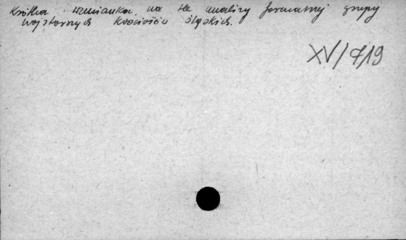 Krótka wzmianka na tle analizy formalnej grupy
wojstarnych kościołów śląskich.
XV/719